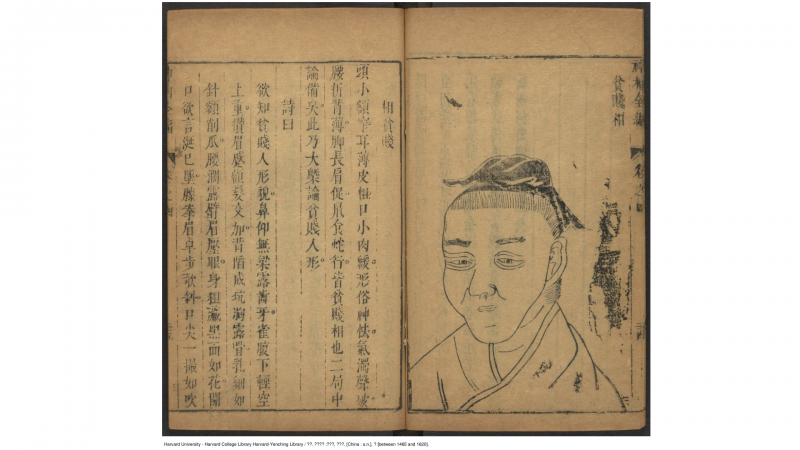 貧賤相
相貧賤
頭小額窄耳薄皮粗口小肉緩形俗神怯氣濁聲破
腰折背薄脚長眉促鼠食蛇行皆貧賤相也二句中
論備矣此乃大槩論貧賤人形
詩曰
欲知貧賤人形視鼻仰無梁露齒牙雀腹下輕空
上重攢眉蹙額髮交加背陷成坑胸露骨乳細如
針額削瓜腰濶露臀眉壓眼身粗黑面如花開
口欲言涎已墜膝拳眉卓步欹斜口尖一撮如吹
Harvard University - Harvard College Library Harvard-Yenching Library / ??. ???? :???, ???, [China : s.n.], ? [between 1465 and 1620].